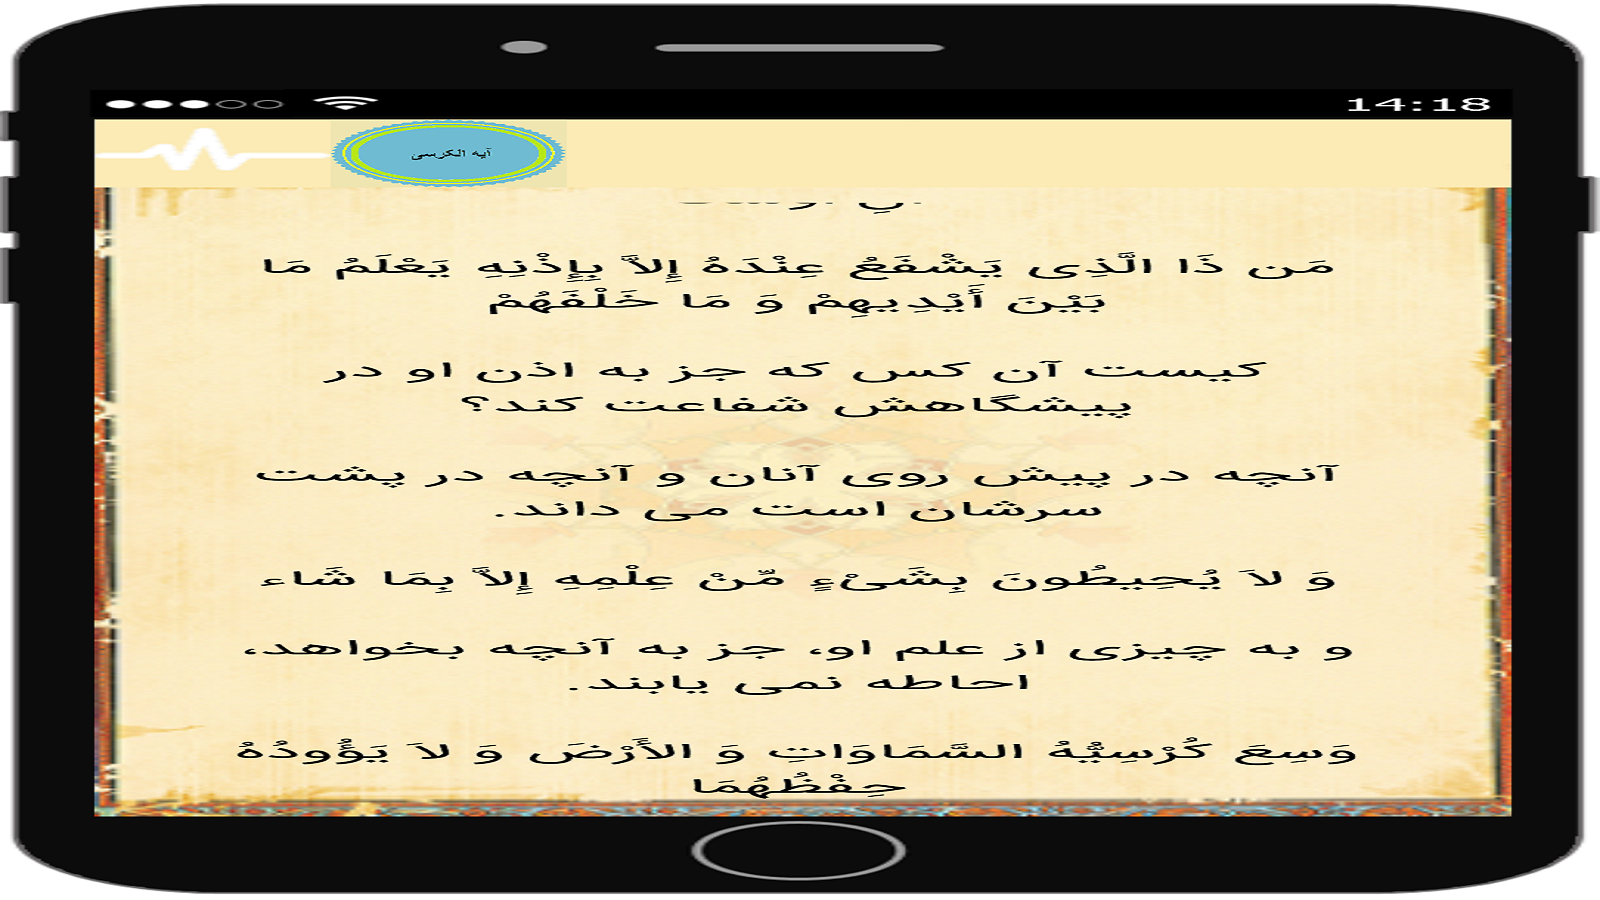 14:18
آیه الکرسی
مَن ذَا الَّذِی یَشْفَعُ عِنْدَهُ إِلاَّ بِإِذْنِهِ یَعْلَمُ مَا
بَیْنَ أَیْدِیهِمْ وَ مَا خَلْفَهُمْ
کیست آن کس که جز به اذن او در
پیشگاهش شفاعت کند؟
آنچه در پیش روی آنان و آنچه در پشت
سرشان است می داند.
وَ لاَ یُحِیطُونَ بِشَیْءٍ مِّنْ عِلْمِهِ إِلاَّ بِمَا شَاء
و به چیزی از علم او، جز به آنچه بخواهد،
احاطه نمی یابند.
وَسِعَ کُرْسِیُّهُ السَّمَاوَاتِ وَ الأَرْضَ وَ لاَ یَؤُودُهُ
حِفْظُهُمَا